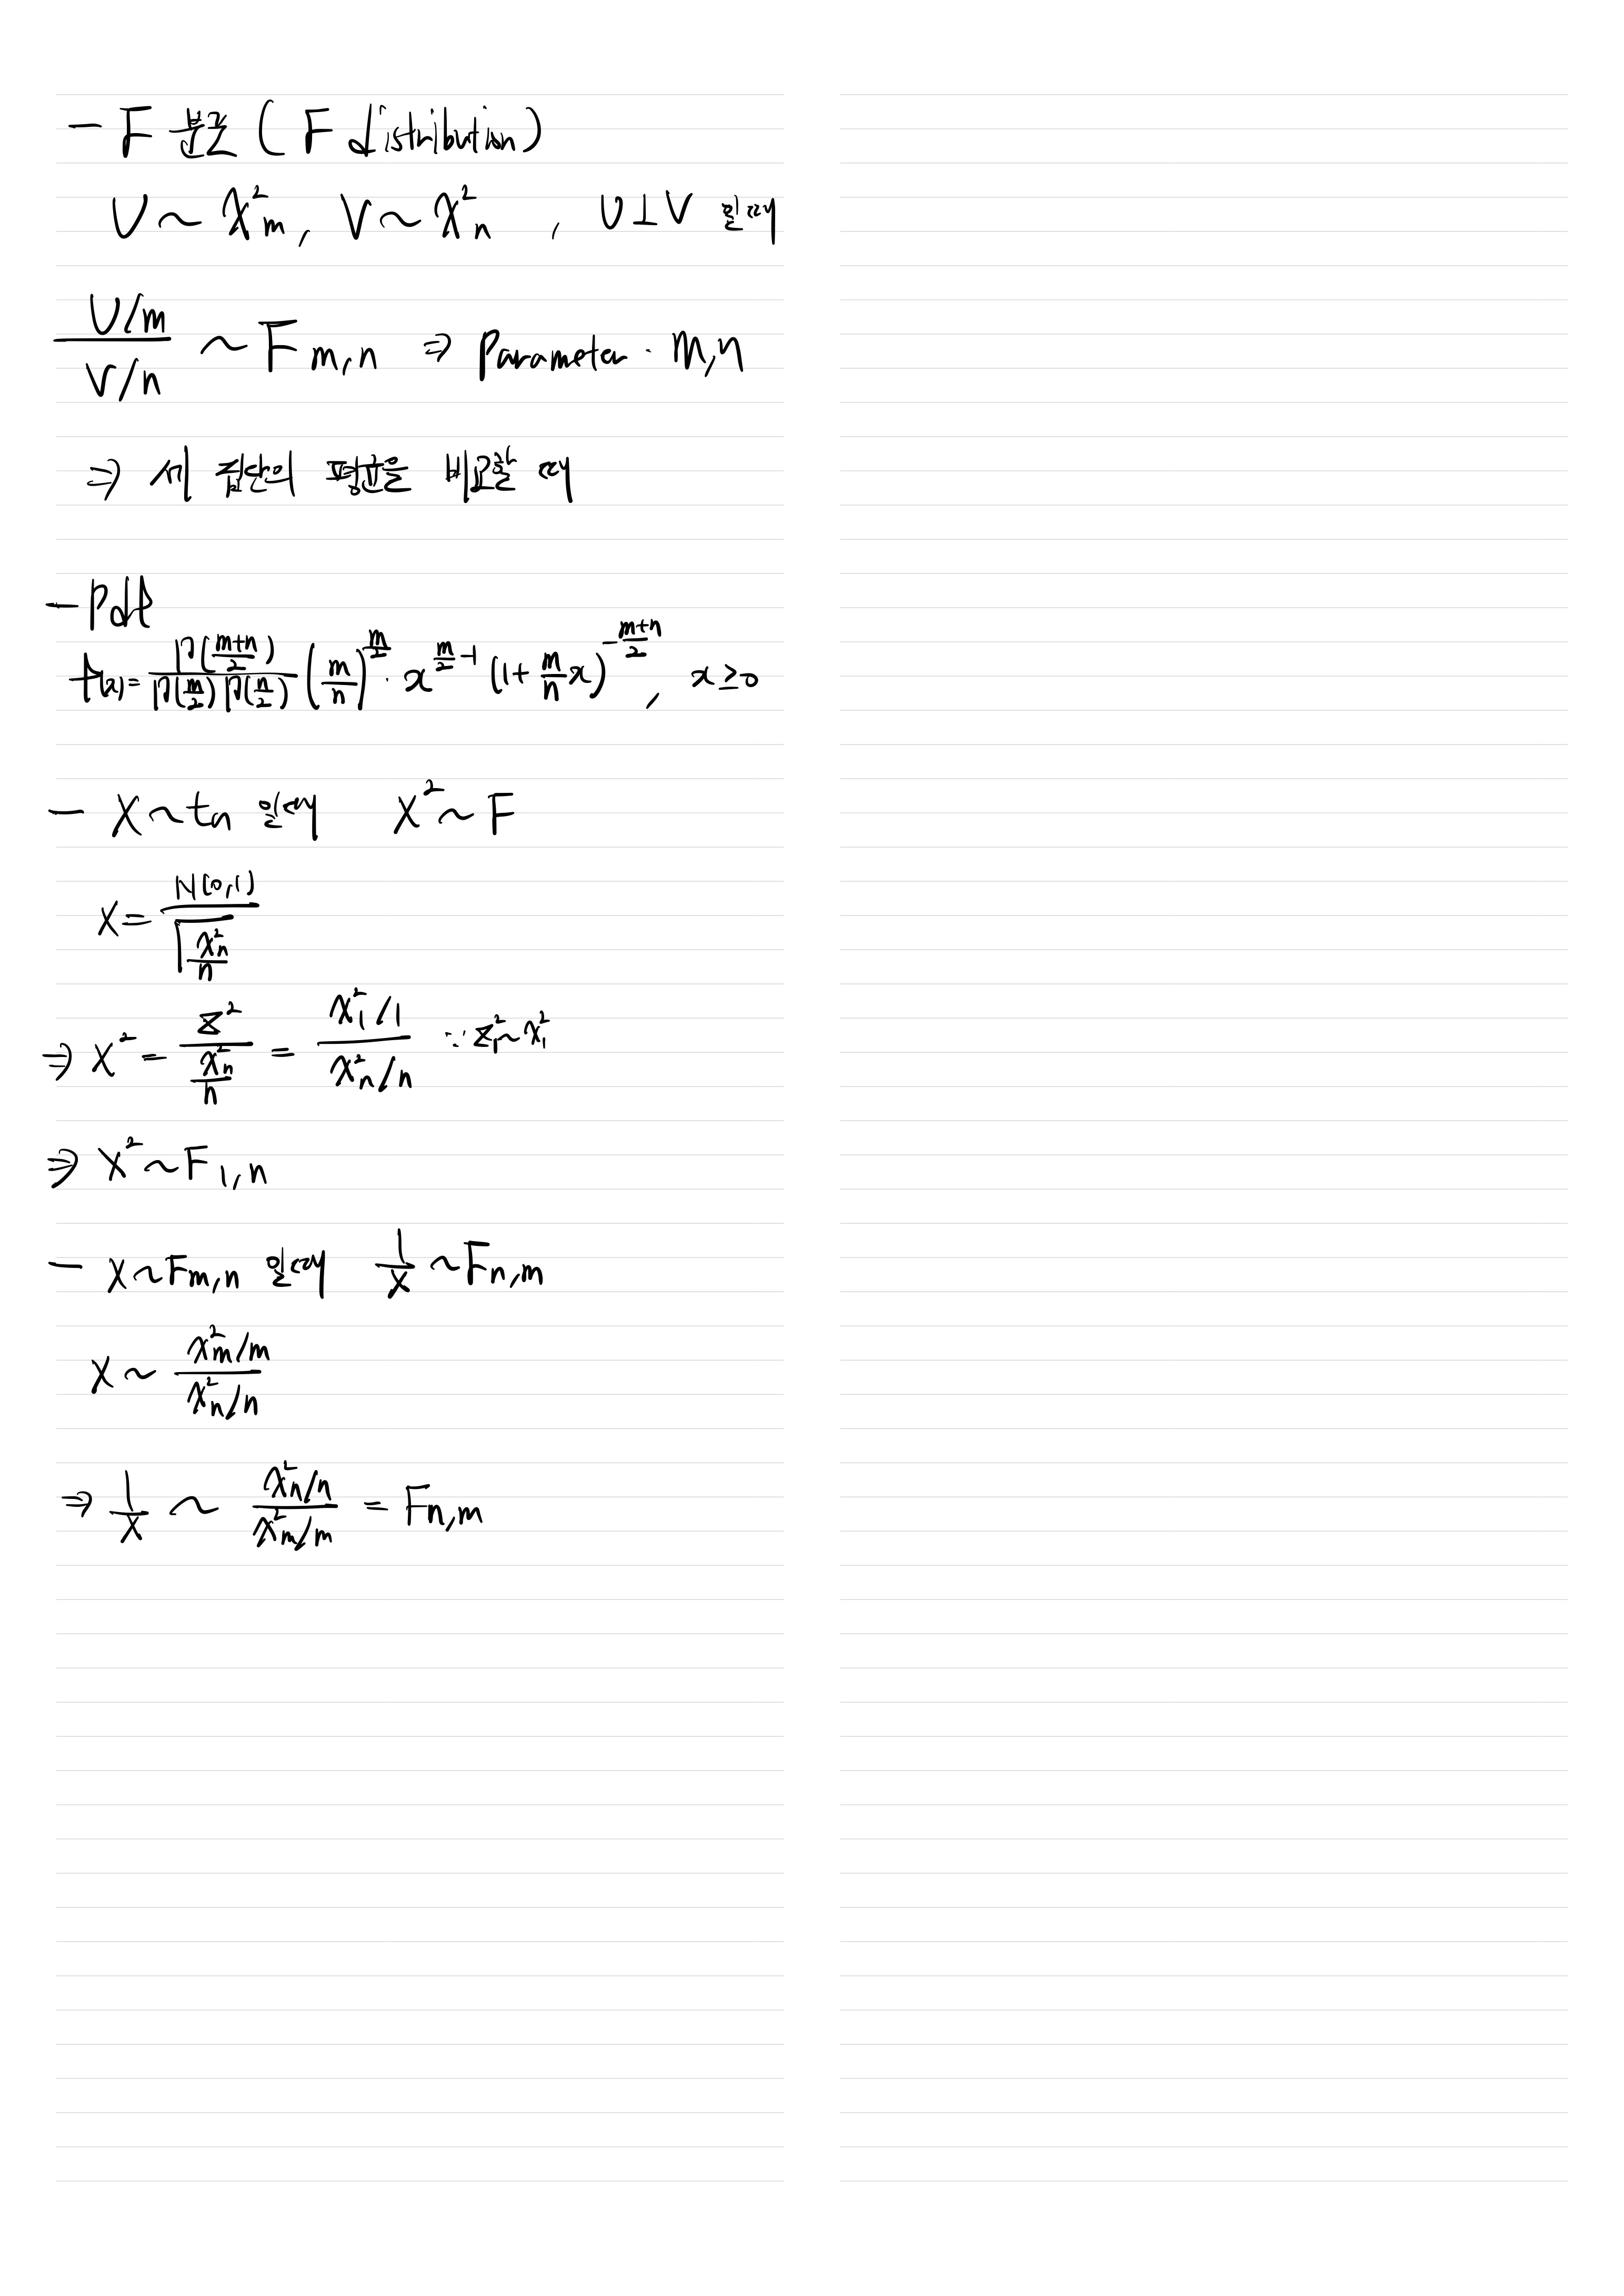 - F 분포 ( F distribution )
U ~ χ²ₘ, V ~ χ²ₙ , U⊥V 일때
(U/m)/(V/n) ~ F m,n ⇒ parameter · m,n
⇒ 세 집단의 평균을 비교할 때
- Pdf
f(x) = Γ((m+n)/2) / (Γ(m/2) Γ(n/2)) (m/n)^(m/2) · x^(m/2 -1) (1 + (m/n)x)^(-(m+n)/2) , x ≥ 0
- X ~ tn 일때 X² ~ F
X = N(0,1) / √(χ²ₙ/n)
⇒ X² = Z² / (χ²ₙ/n) = (χ²₁/1) / (χ²ₙ/n) ∵ Z₁² ~ χ²₁
⇒ X² ~ F 1,n
- X ~ Fm,n 일때 1/X ~ Fn,m
X ~ (χ²ₘ/m) / (χ²ₙ/n)
⇒ 1/X ~ (χ²ₙ/n) / (χ²ₘ/m) = Fn,m